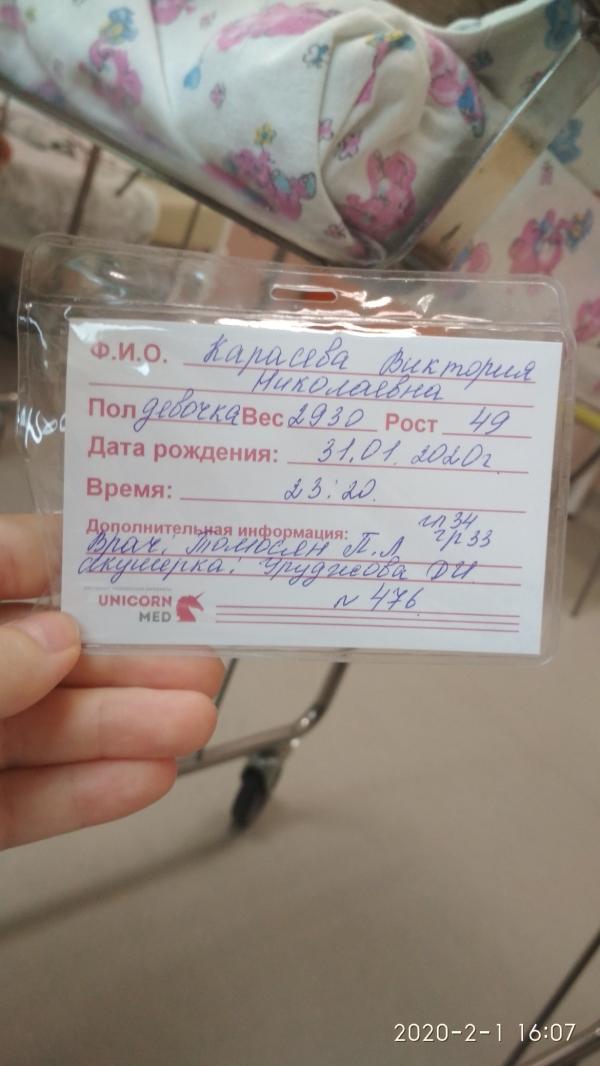 Ф.И.О. Карасева Виктория
Николаевна
Пол девочка Вес 2930 Рост 49
Дата рождения: 31.01.2020г.
Время: 23:20.
Дополнительная информация: гп34
гр33
Врач: Томосян П.Л
Акушерка: ДИ
UNICORN
MED
N 476
2020-2-1 16:07